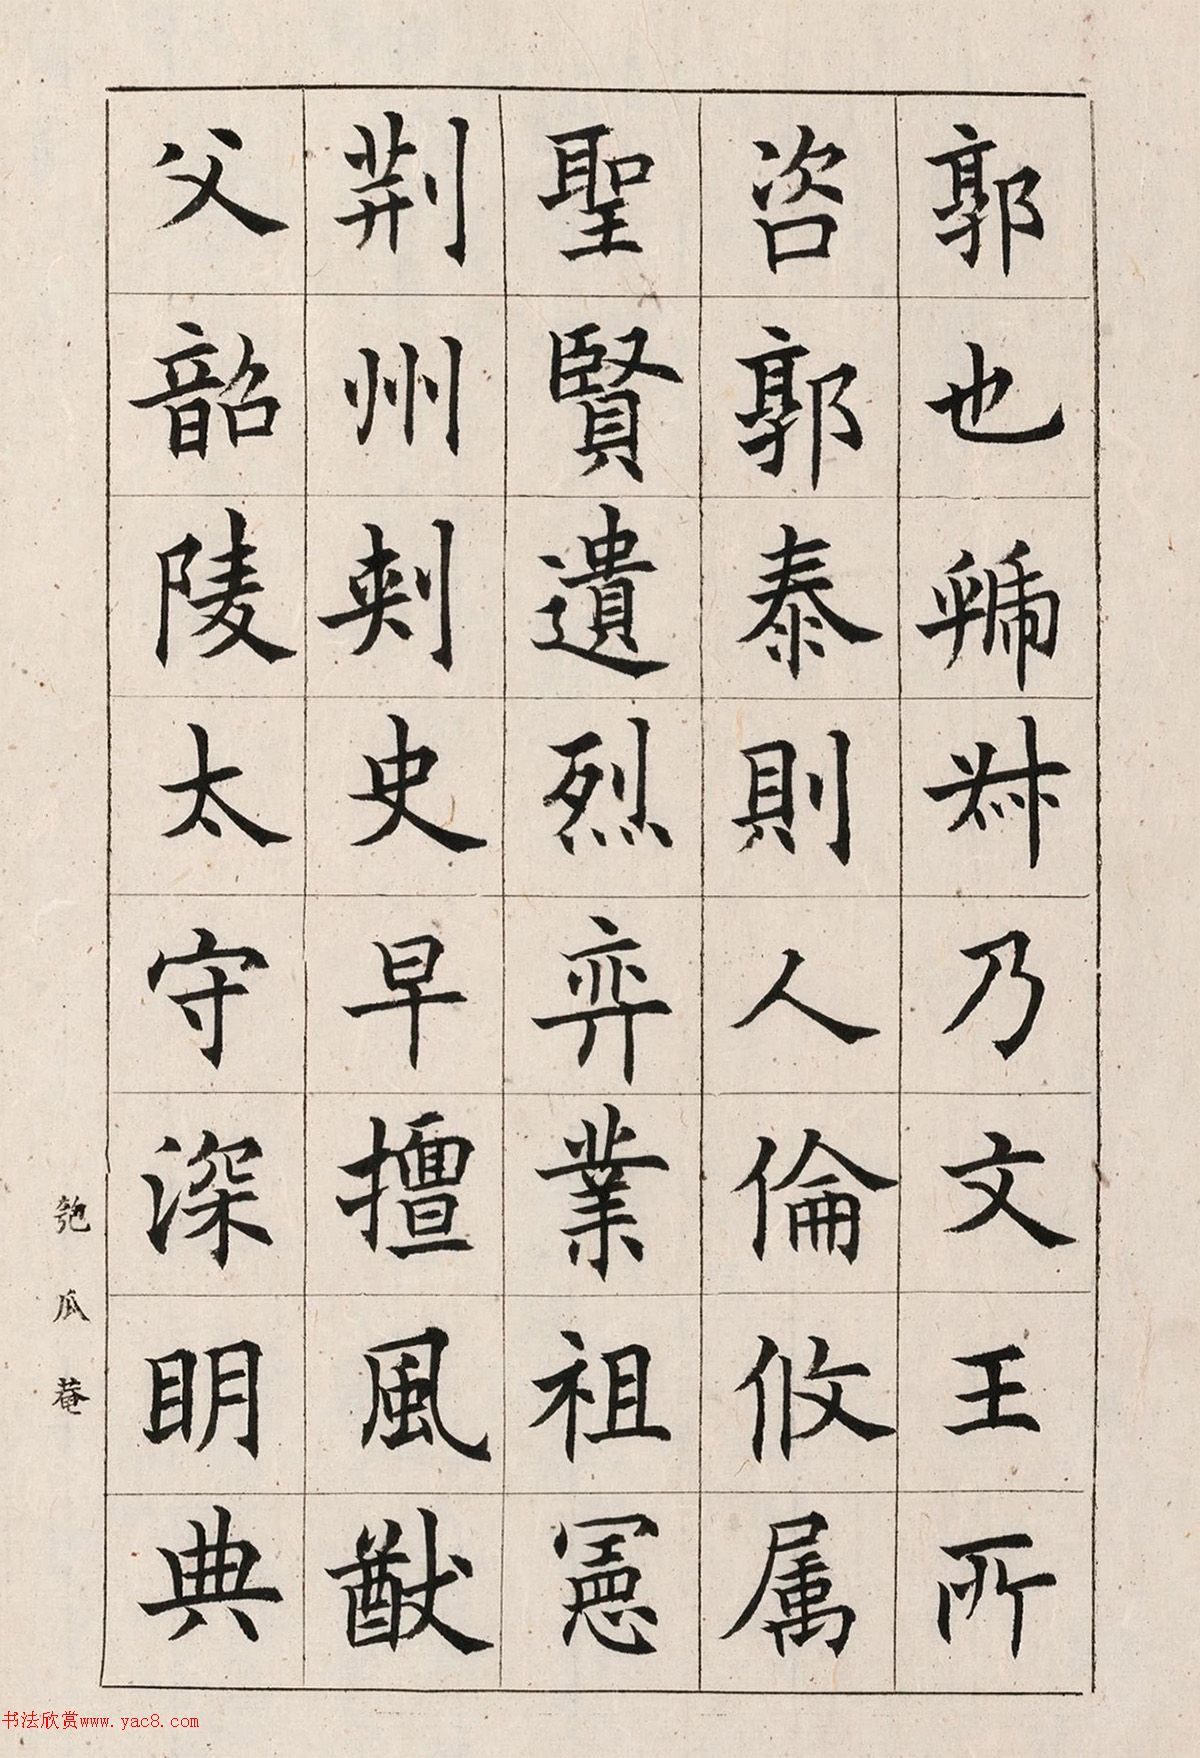 郭也虢叔乃文王所
咨郭泰則人倫攸属
聖賢遺烈弈業祖憲
荆州刺史早擅風猷
父韶陵太守深明典
匏瓜菴
书法欣赏www.yac8.com